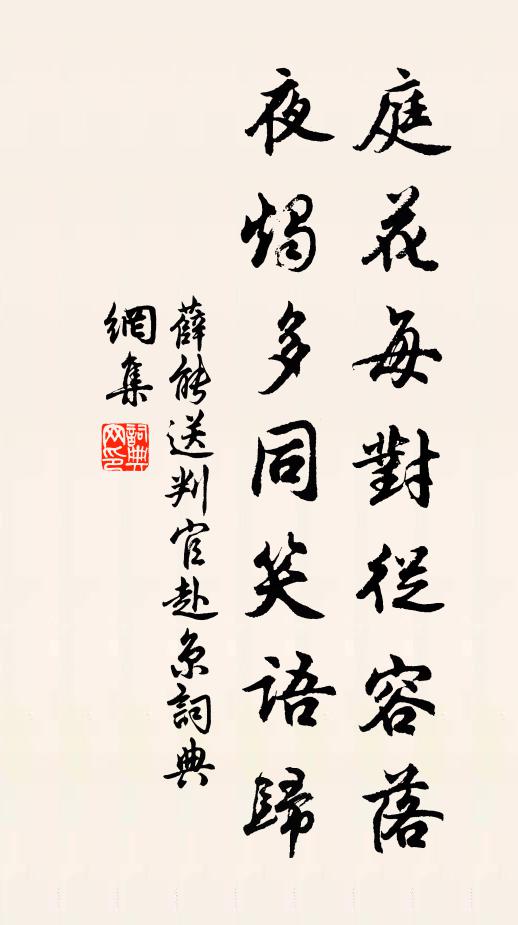 庭花每對從容落
夜燭多同笑語歸
薛能送判官赴京詞典
網集
詞典網印